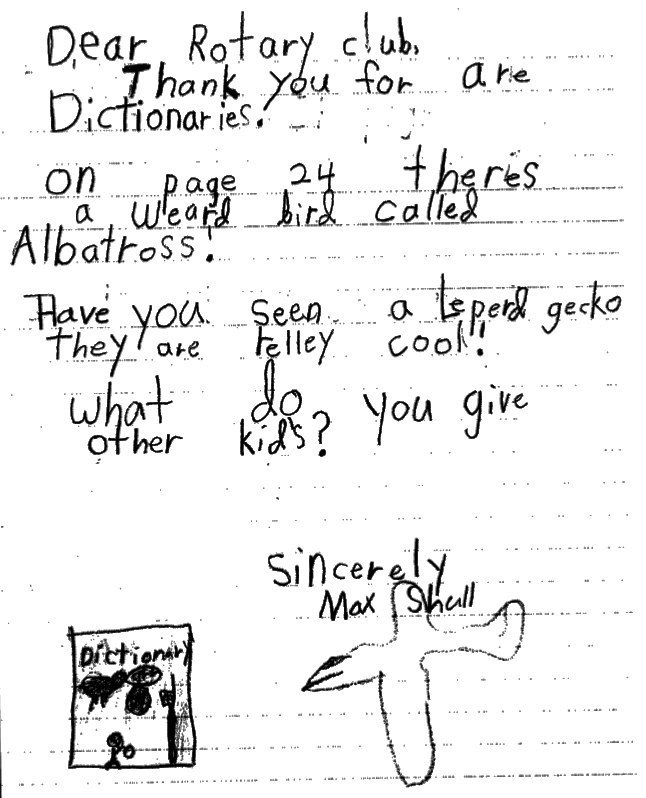 Dear Rotary club,
Thank you for are
Dictionaries!
on page 24 theres
a weard bird called
Albatross!
Have you seen a leperd gecko
they are relley cool!
what do you give
other kid's?
Sincerely
Max Shull
Dictionary